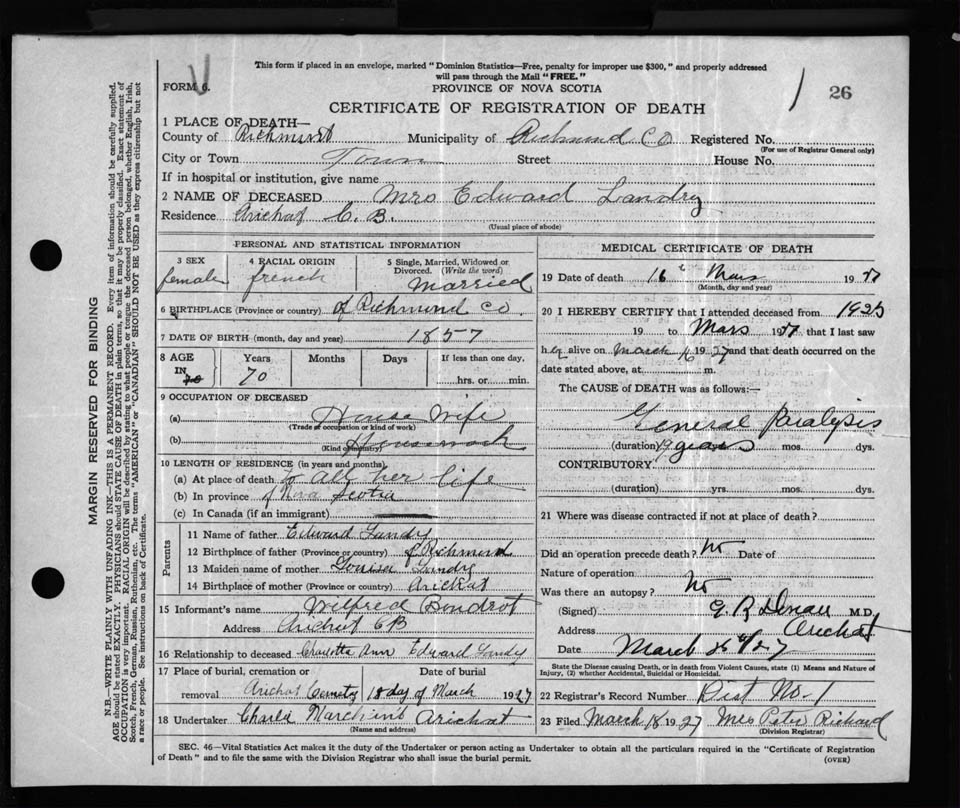 This form if placed in an envelope, marked "Dominion Statistics—Free, penalty for improper use $300," and properly addressed
will pass through the Mail "FREE."
FORM 6.
PROVINCE OF NOVA SCOTIA
26
CERTIFICATE OF REGISTRATION OF DEATH
1 PLACE OF DEATH—
County of Richmond Municipality of Richmond Co Registered No.
(For use of Registrar General only)
City or Town Town Street House No.
If in hospital or institution, give name
2 NAME OF DECEASED Mrs Edward Landry
Residence Arichat C. B.
(Usual place of abode)
PERSONAL AND STATISTICAL INFORMATION
3 SEX 4 RACIAL ORIGIN 5 Single, Married, Widowed or Divorced. (Write the word)
female french Married
6 BIRTHPLACE (Province or country) of Richmond Co.
7 DATE OF BIRTH (month, day and year) 1857
8 AGE IN Years Months Days If less than one day.
70 hrs. or min.
9 OCCUPATION OF DECEASED
(a) House Wife
(Trade or occupation or kind of work)
(b) Housework
(Kind of industry)
10 LENGTH OF RESIDENCE (in years and months)
(a) At place of death to all her life
(b) In province of Nova Scotia
(c) In Canada (if an immigrant)
Parents
11 Name of father Edward Landy
12 Birthplace of father (Province or country) of Richmond
13 Maiden name of mother Louisa Landry
14 Birthplace of mother (Province or country) Arichat
15 Informant's name Wilfred
Address Arichat CB
16 Relationship to deceased Charlotte Ann Edward Landy
17 Place of burial, cremation or removal Date of burial
Arichat Cemetry 18 day of March 1927
18 Undertaker Charlie Arichat
(Name and address)
MEDICAL CERTIFICATE OF DEATH
19 Date of death 16 Mars 1927
(Month, day and year)
20 I HEREBY CERTIFY that I attended deceased from 1925
19 to Mars 1927 that I last saw
her alive on March 16 1927 and that death occurred on the
date stated above, at m.
The CAUSE of DEATH was as follows:—
General Paralysis
(duration) years mos. dys.
CONTRIBUTORY
(duration) yrs. mos. dys.
21 Where was disease contracted if not at place of death?
Did an operation precede death? No Date of
Nature of operation
Was there an autopsy? No
(Signed) M.D.
Address Arichat
Date March
State the Disease causing Death, or in death from Violent Causes, state (1) Means and Nature of
Injury, (2) whether Accidental, Suicidal or Homicidal.
22 Registrar's Record Number Dist No. 1
23 Filed March 18 1927 Mrs Peter Richard
(Division Registrar)
SEC. 46—Vital Statistics Act makes it the duty of the Undertaker or person acting as Undertaker to obtain all the particulars required in the "Certificate of Registration
of Death" and to file the same with the Division Registrar who shall issue the burial permit.
(OVER)
MARGIN RESERVED FOR BINDING
N.B.—WRITE PLAINLY WITH UNFADING INK—THIS IS A PERMANENT RECORD. Every item of information should be carefully supplied.
AGE should be stated EXACTLY. PHYSICIANS should STATE CAUSE OF DEATH in plain terms, so that it may be properly classified. Exact statement of
OCCUPATION is very important. RACIAL ORIGIN will be described by stating to what people or tongue the deceased person belonged, whether English, Irish,
Scotch, French, German, Russian, Ruthenian, etc. The terms "AMERICAN" or "CANADIAN" SHOULD NOT BE USED as they express citizenship but not
a race or people. See instructions on back of Certificate.